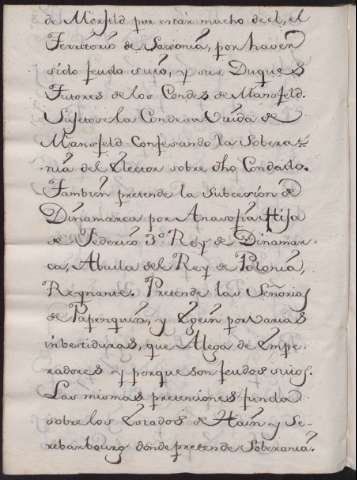 de Mansfeld por estár mucho de el, el
Territorio de Saxonia, por haver
sido feudo suio, y sus Duques
Tutores de los Condes de Mansfeld.
Sujetose la Condesa Viuda de
Mansfeld Confesando la Sobera=
nia del Elector sobre dho Condado.
Tambien pretende la Subcesion de
Dinamarca por Ana Sofia Hija
de Federico 3º Rey de Dinamar=
ca, Abuela del Rey de Polonia,
Reynante. Pretende las Señorias
de Papenquin, y por varias
inbestiduras, que Alega de Empe=
radores y porque son feudos suios.
Las mismas pretensiones funda
sobre los Estados de Hain y Se=
donde pretende Soberania.